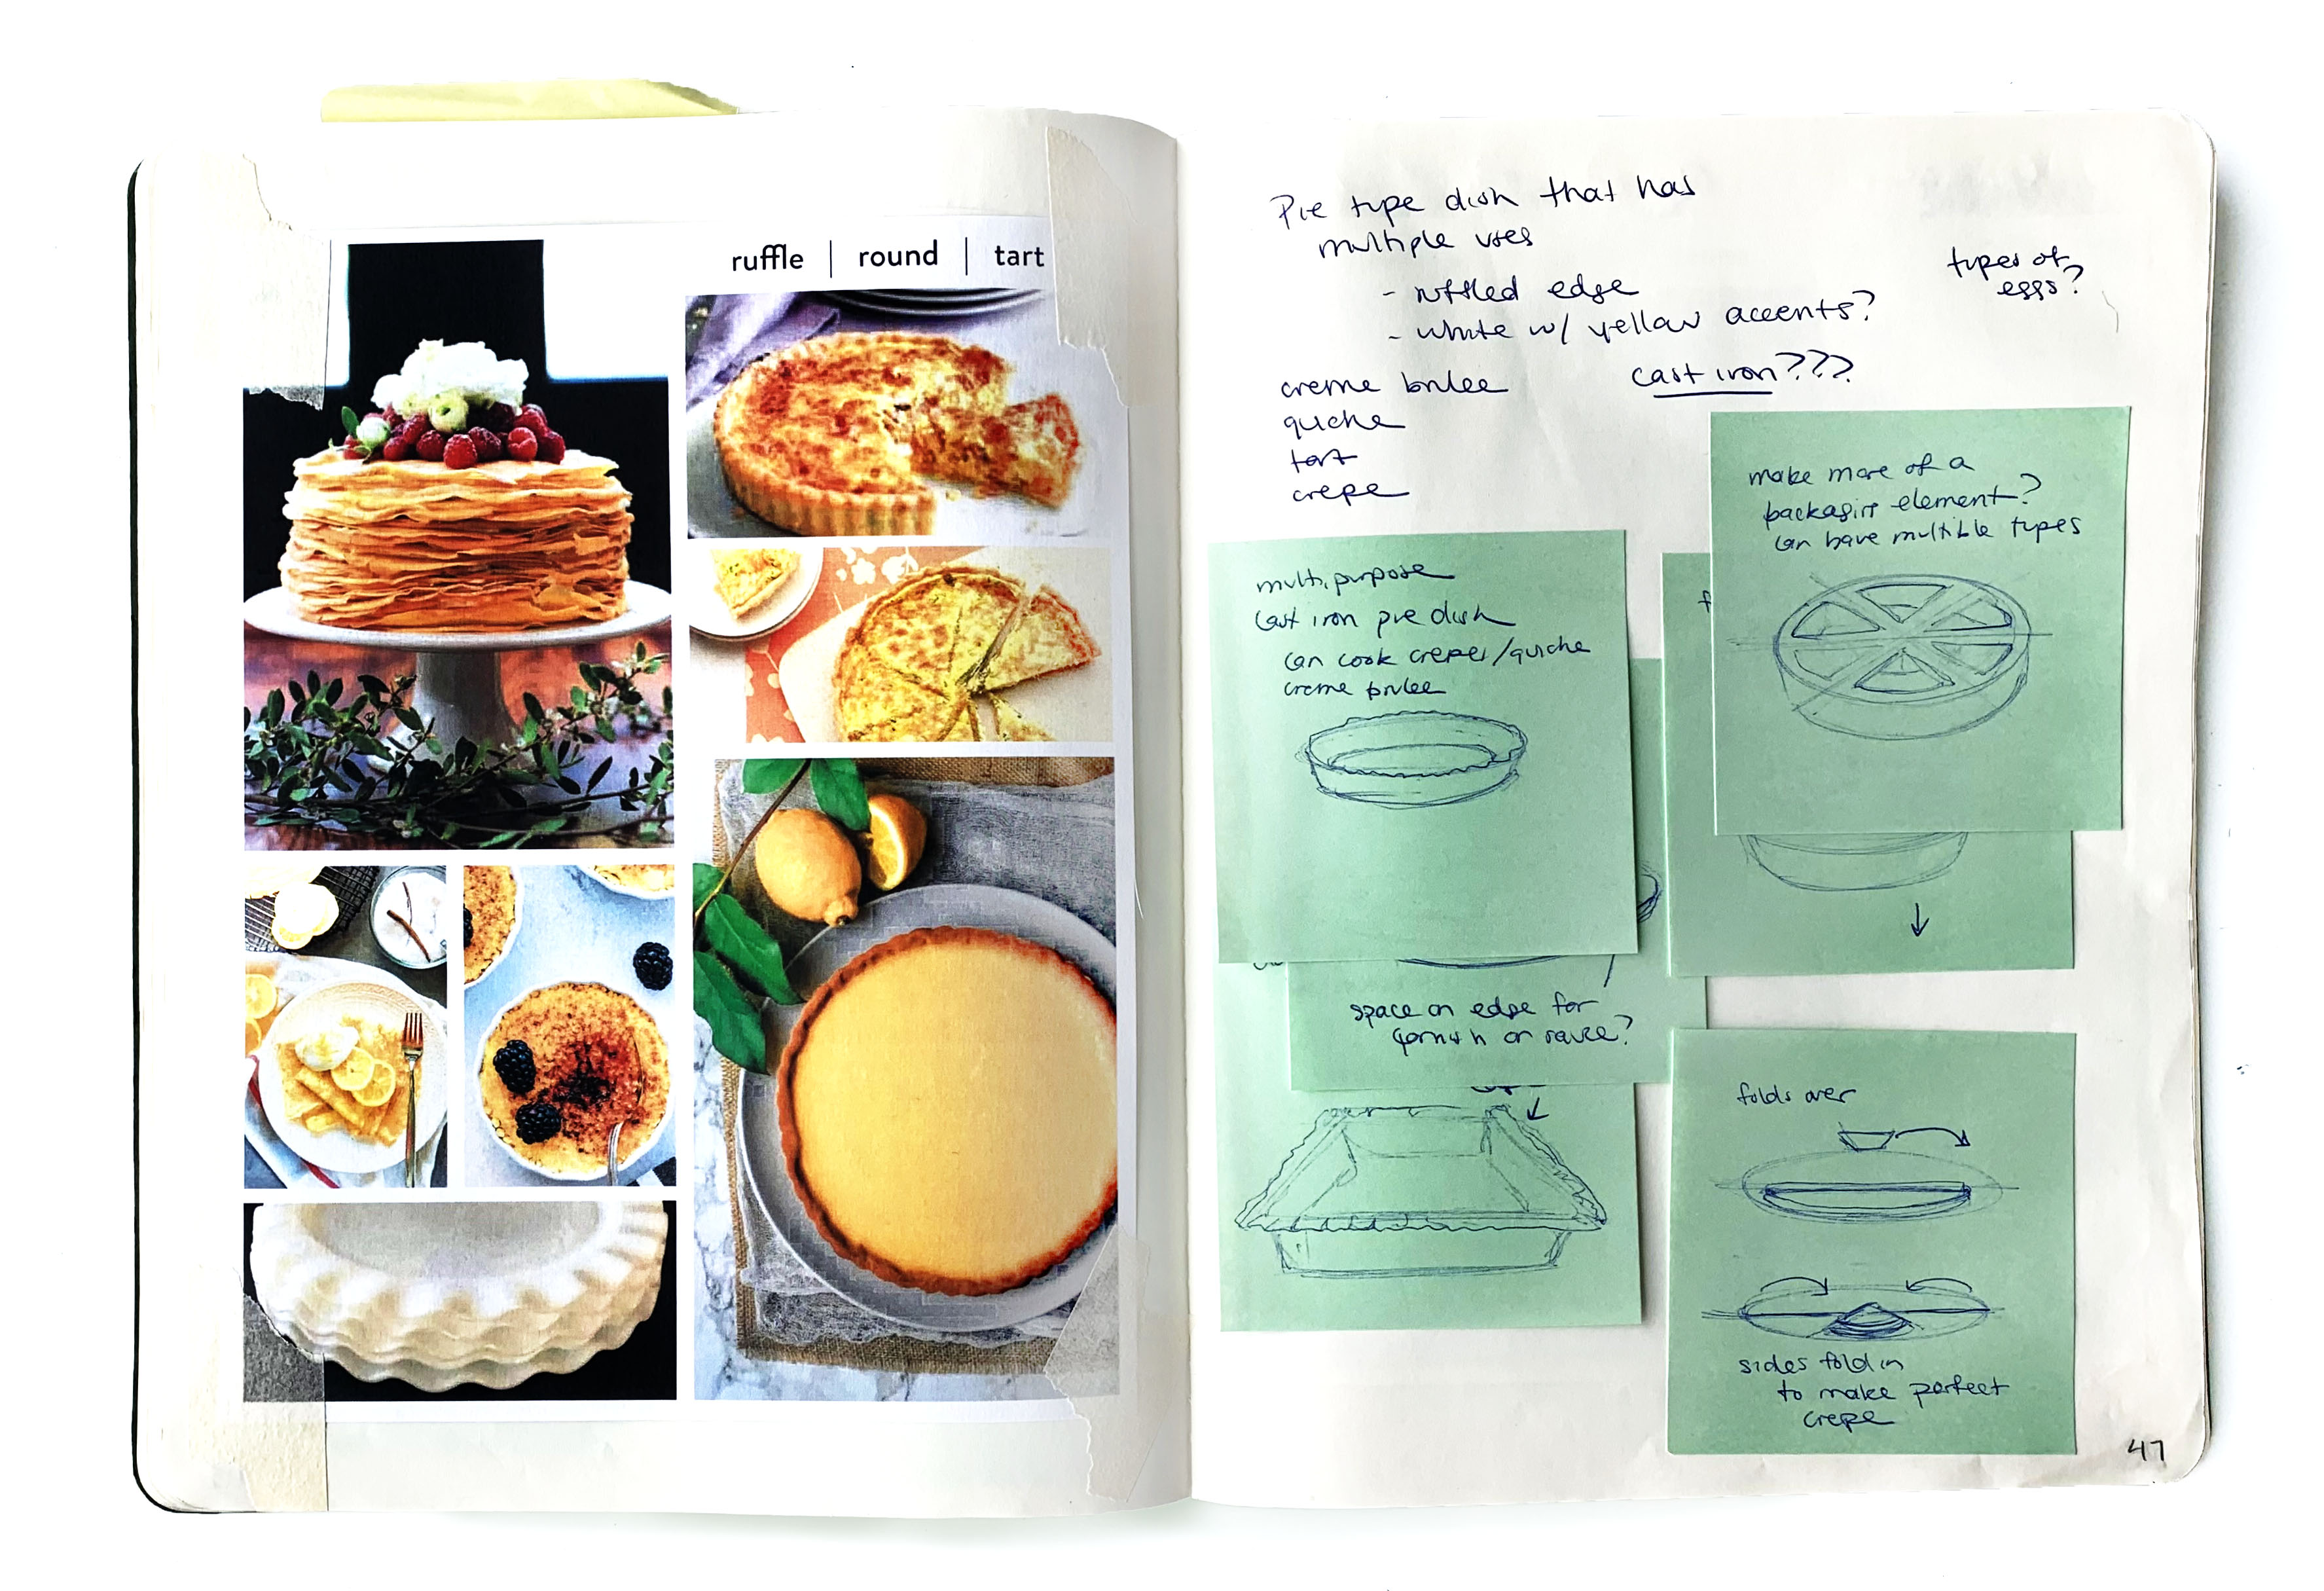 ruffle | round | tart
Pie type dish that has
multiple uses
- ruffled edge
- white w/ yellow accents?
types of
eggs?
cast iron???
creme brulee
quiche
tart
crepe
make more of a
packaging element?
can have multible types
multipurpose
Cast iron pie dish
can cook crepes/quiche
creme brulee
space on edge for
garnish or sauce?
folds over
sides fold in
to make perfect
crepe
47